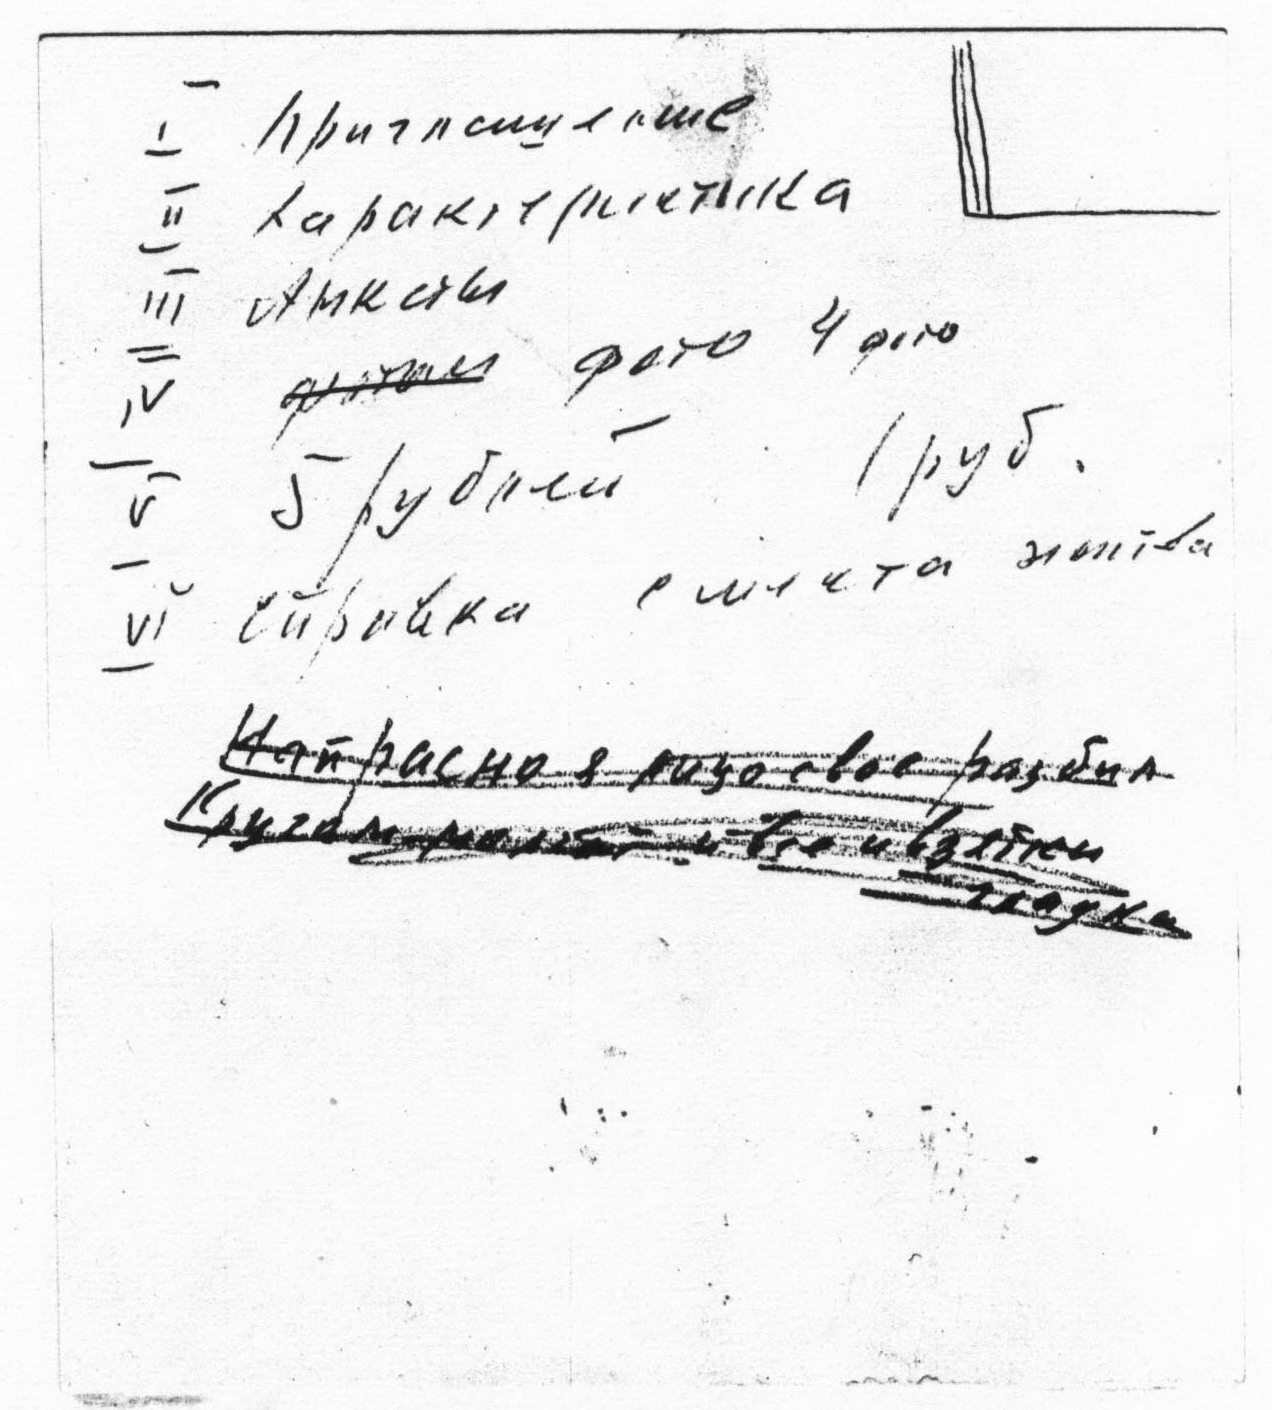 I Приглашение
II Характеристика
III Анкеты
IV фото 4 фото
V 5 рублей 1 руб.
VI Справка с места жит-ва
Напрасно я лицо свое разбил
Кругом молчат и все и взятки
гладки